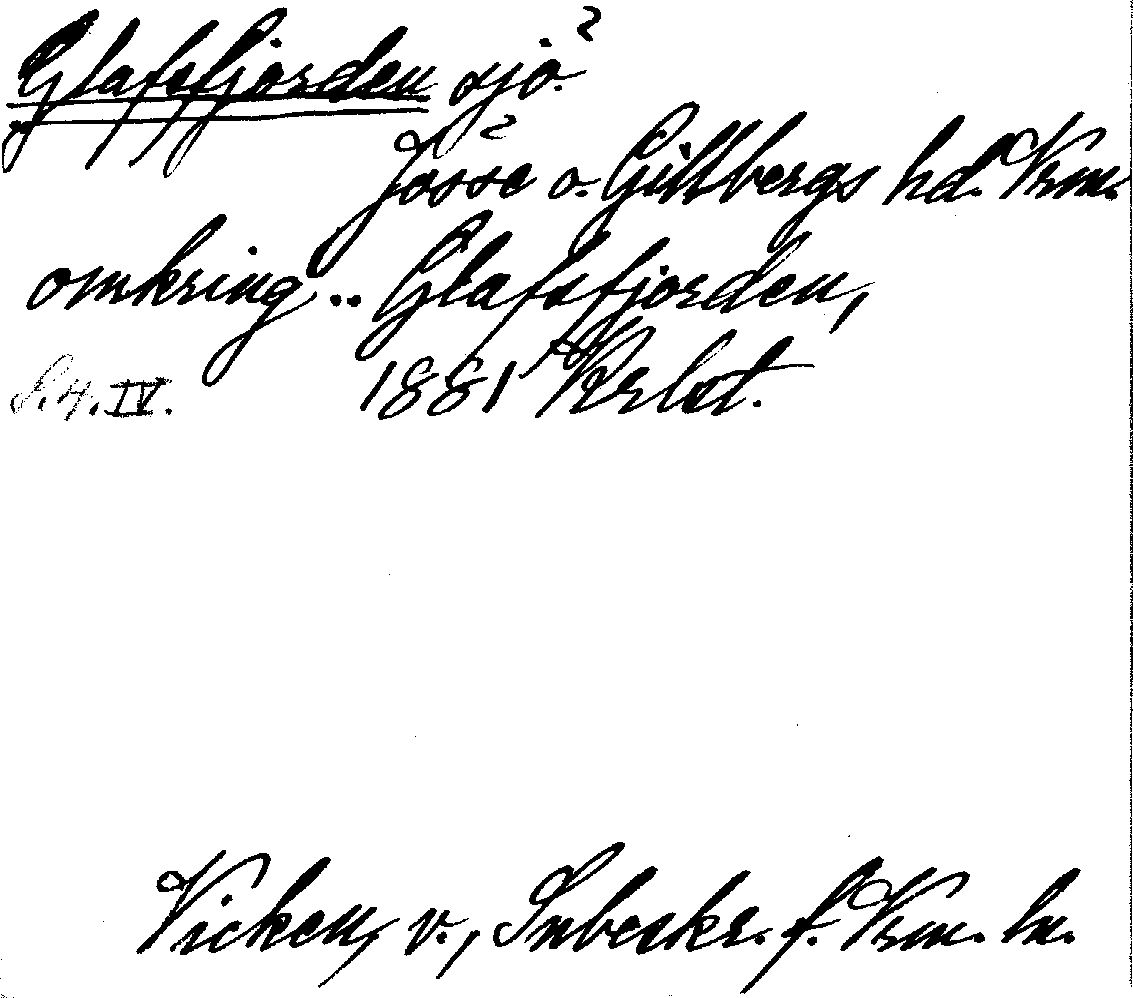 Glafsfjorden sjö.
Jösse o. Gillbergs hd. Vrm.
omkring .. Glafsfjorden,
S.4.IV. 1881
Vicken, v., Snbeskr. f. Vrm. ln.